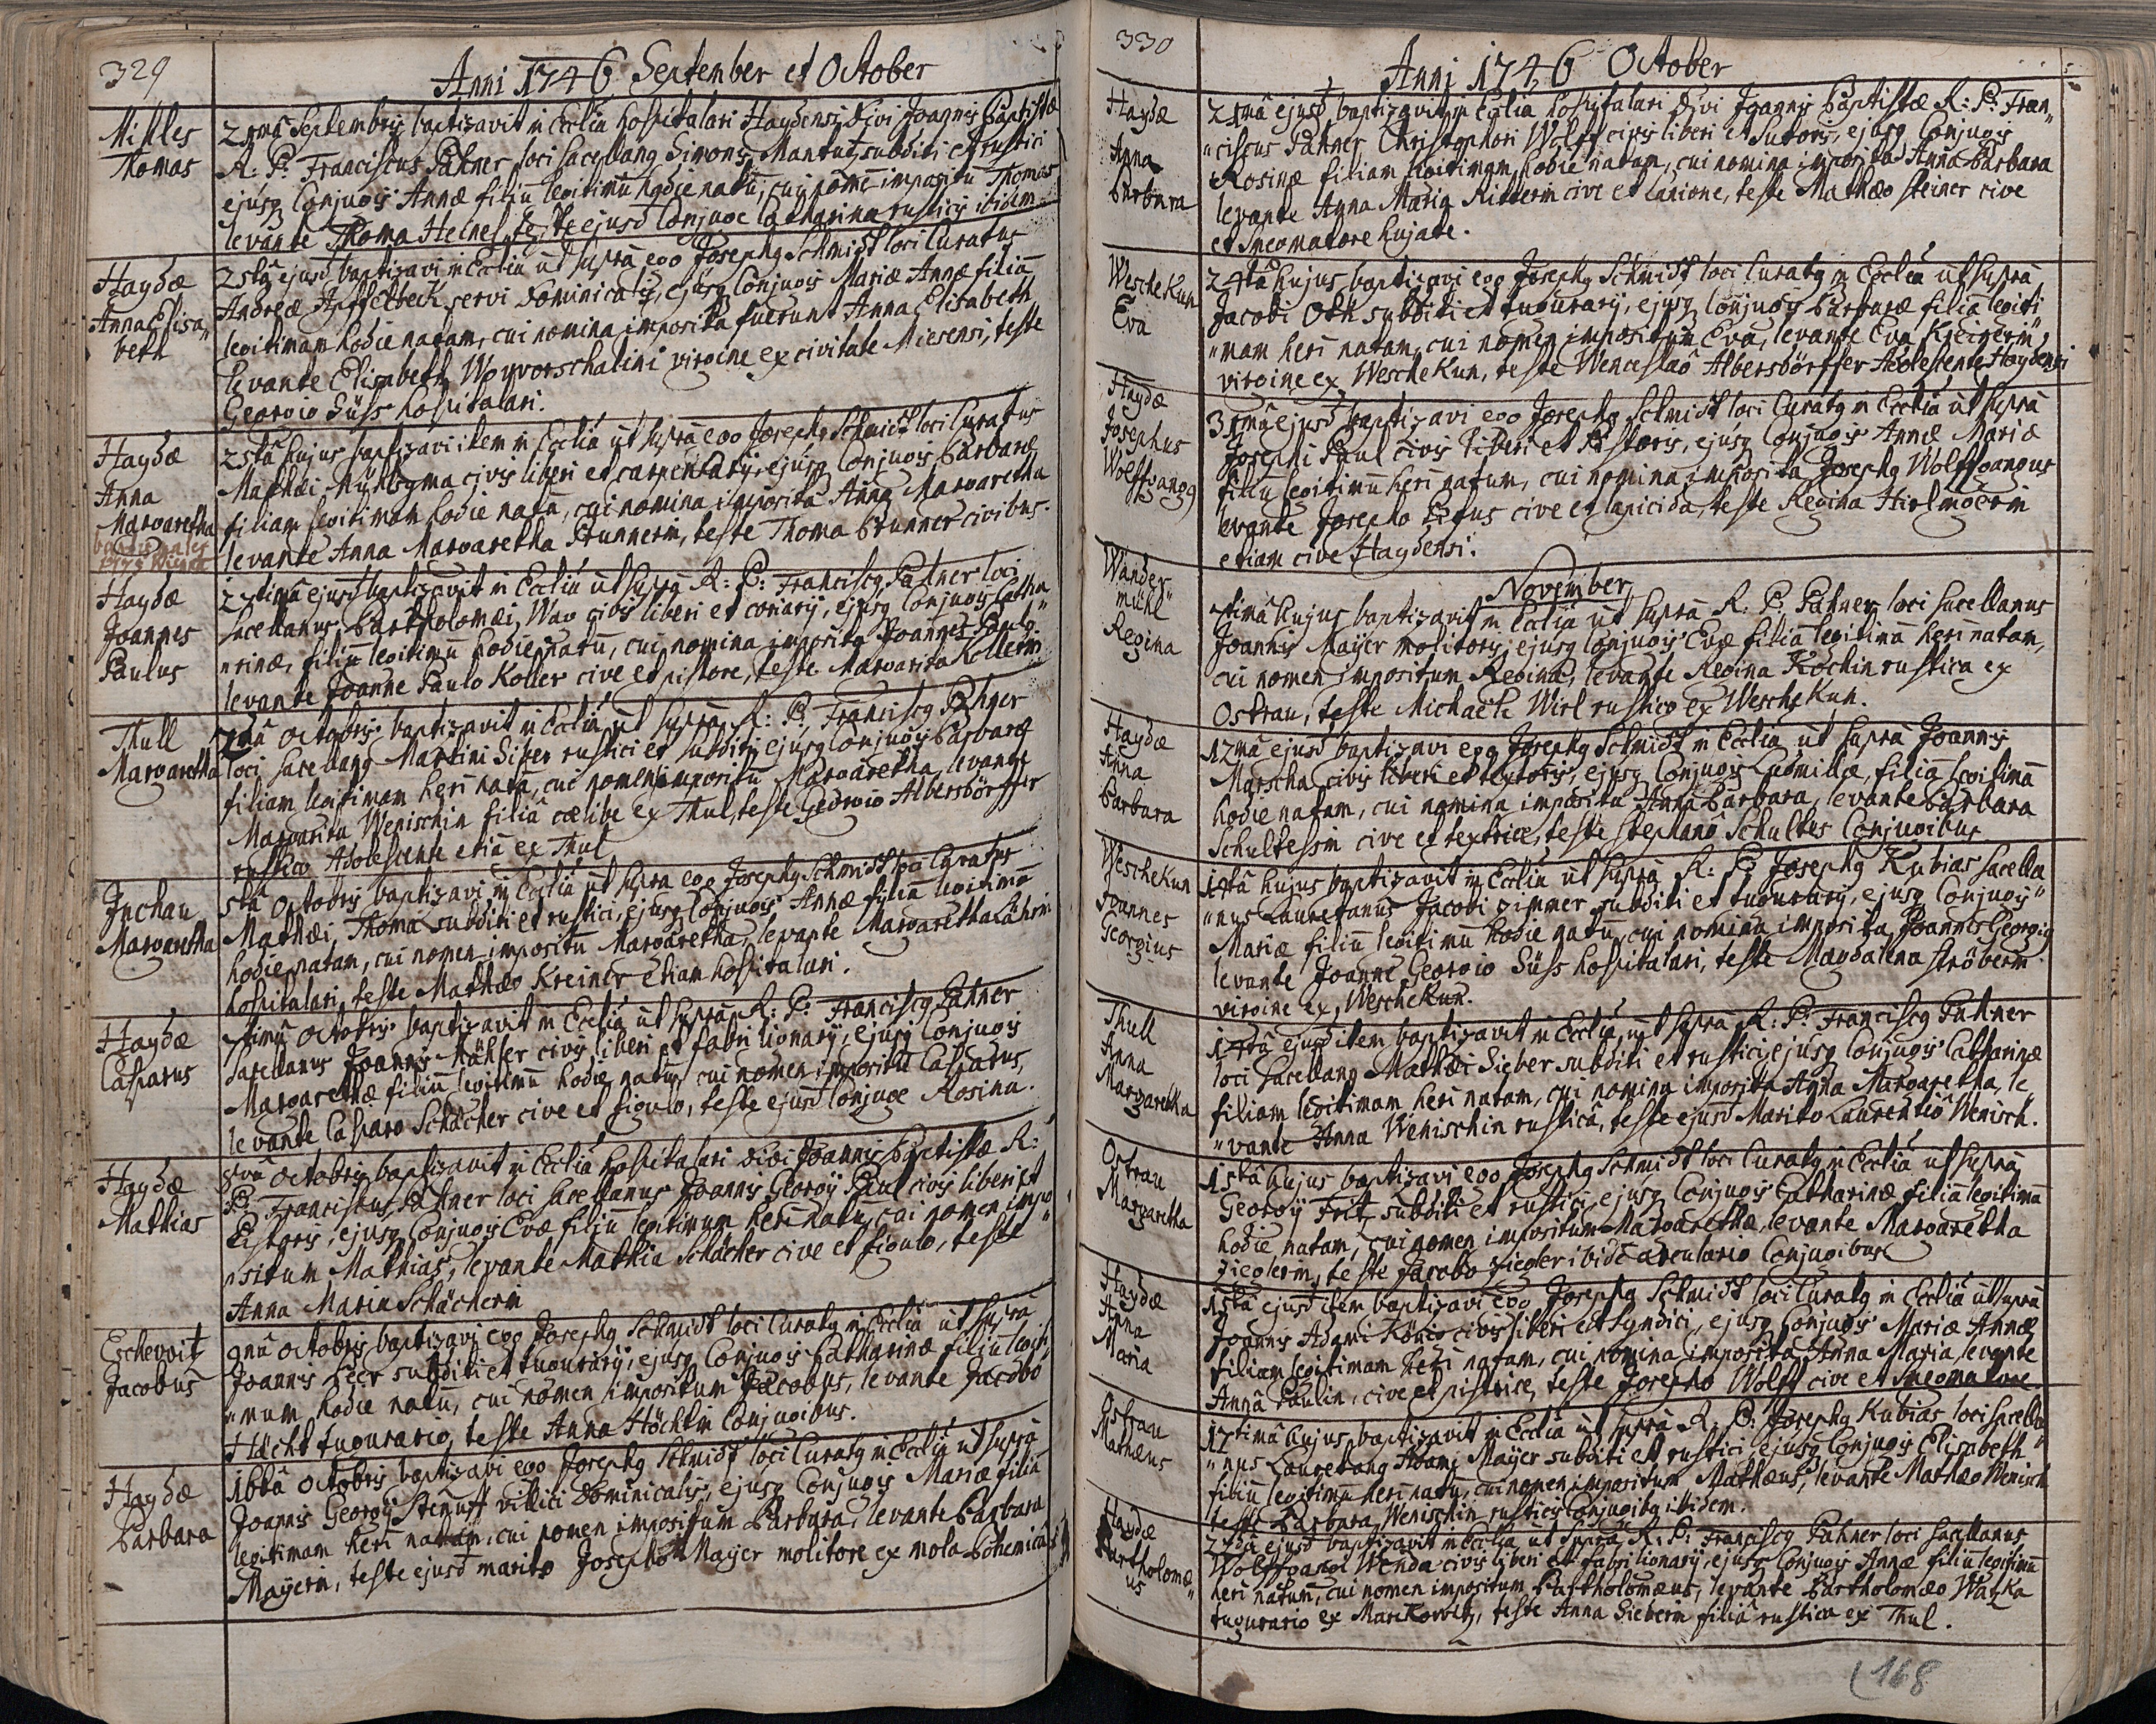 329
Anni 1746 September et October
Milles
Thomas
21mâ Septembris baptizavit in Ecclia hospitalari Haydensi Divi Joannis Baptistæ
R: P: Franciscus Pahner loci Sacellang Simonis Mantutz subditi et rustici
ejusq Conjugis Annæ filiū legitimū hodie natū, cui nomē impositū Thomas
levante Thoma Heinel, teste ejusd Conjuge Catharina rusticis ibidem
Haydæ
Anna Elisa„
beth
25tâ ejusd baptizavi in Eccliâ ut suprà ego Josephg Schmidt loci Curatus
Andreæ Apffelbeck servi Dominicalis, ejusq Conjugis Mariæ Annæ filiā
legitimam hodie natam, cui nomina imposita fuerunt Anna Elisabeth
levante Elisabeth Woyworschalini virgine ex civitate Miesensi, teste
Georgio Süss hospitalari.
Haydæ
Anna
Margaretha
25tâ hujus baptizavi item in Eccliâ ut suprà ego Josephg Schmidt loci Curatus
Mathæi civis liberi et carpentarij, ejusq Conjugis Barbaræ
filiam legitimam hodie natā, cui nomina imposita Anna Margaretha
levante Anna Margaretha Brunnerin, teste Thoma Brunner civibus.
Haydæ
Joannes
Paulus
27timâ ejusd baptizavit in Ecclia ut suprà R: P: Franciscg Pahner loci
Sacellanus, Bartholomæi Wav civis liberi et coriarij, ejusq Conjugis Catha
„rinæ, filiū legitimū hodie natū, cui nomina imposita Joannes Paulg
levante Joanne Paulo Koller cive et pistore, teste Margarita Kollerin
Thull
Margaretha
2dâ Octobris baptizavit in Ecclia ut suprà R: P: Franciscg Pahner
loci Sacellang Martini Siber rustici et subditi ejusq Conjugis Barbaræ
filiam legitimam heri natā, cui nomen impositū Margaretha, levante
Margarita Wenischin filiâ cælibe ex Thul, teste Georgio Albersdörffer
rustico Adolescente etiā ex Thul
Juchau
Margaretha
5tâ Octobris baptizavi in Ecclia ut supra ego Josephg Schmidt loci Curatus
Mathæi Thoma subditi et rustici, ejusq Conjugis Annæ filiā legitimā
hodie natam, cui nomen impositū Margaretha, levante Margaretha
hospitalari, teste Mathæo Kreiner etiam hospitalari.
Haydæ
Casparus
7timâ Octobris baptizavit in Ecclia ut suprà R: P: Franciscg Pahner
Sacellanus Joannis Mähler civis liberi et fabri lignarij, ejusq Conjugis
Margarethæ filiū legitimū hodie natū, cui nomen impositū Casparus,
levante Casparo Schächer cive et figulo, teste ejusd Conjuge Rosina.
Haydæ
Mathias
8vâ Octobris baptizavit in Ecclia hospitalari Divi Joannis Baptistæ R:
P: Franciscus Pahner loci Sacellanus Joannis Georgij Paul civis liberi et
Pistoris, ejusq Conjugis Evæ filiū legitimum heri natū, cui nomen impo
„situm Mathias, levante Mathia Schächer cive et figulo, teste
Anna Maria Schächerin
Eschewit
Jacobus
9nâ Octobris baptizavi ego Josephg Schmidt loci Curatg in Ecclia ut suprà
Joannis Beer subditi et tugurarij, ejusq Conjugis Catharinæ filiū legiti
„mum hodie natū, cui nomen impositum Jacobus, levante Jacobo
Höchl tugurario, teste Anna Höchlin Conjugibus.
Haydæ
Barbara
16tâ Octobris baptizavi ego Josephg Schmidt loci Curatg in Ecclia ut suprà
Joannis Georgij villici Dominicalis, ejusq Conjugis Mariæ filiā
legitimam heri natam, cui nomen impositum Barbara, levante Barbara
Mayerin, teste ejusd marito Josepho Mayer molitore ex mola Bohemicali
330
Anni 1746 October
Haydæ
Anna
Barbara
21mâ ejusd baptizavit in Ecclia hospitalari Divi Joannis Baptistæ R: P: Fran„
„ciscus Pahner Christophori Wolff civis liberi et Sutoris, ejusq Conjugis
Rosinæ filiam legitimam hodie natam, cui nomina imposita Anna Barbara
levante Anna Maria Ritterin cive et lanione, teste Mathæo Steiner cive
et hujate.
WescheKun
Eva
24tâ hujus baptizavi ego Josephg Schmidt loci Curatg in Ecclia ut suprà
Jacobi Oth subditi et tugurarij, ejusq Conjugis Barbaræ filiā legiti
„mam heri natam, cui nomen impositum Eva, levante Eva
virgine ex WescheKun, teste Wenceslaô Albersdörffer Adolescente Haydensi
Haydæ
Josephus
Wolffgangg
31mâ ejusd baptizavi ego Josephg Schmidt loci Curatg in Ecclia ut suprà
Josephi Paul civis liberi et Pistoris, ejusq Conjugis Annæ Mariæ
filiū legitimū heri natum, cui nomina imposita Josephg Wolffgangus
levante Josepho Titus cive et lapicida, teste Regina
etiam cive Haydensi.
November
Wander„
mühl
Regina
7timâ hujus baptizavit in Ecclia ut suprà R. P. Pahner loci Sacellanus
Joannis Mayer molitoris, ejusq Conjugis Evæ filiā legitimā heri natam,
cui nomen impositum Regina, levante Regina Kochin rustica ex
Ostrau, teste Michaele Wirl rustico ex WescheKun.
Haydæ
Anna
Barbara
12mâ ejusd baptizavi ego Josephg Schmidt in Ecclia ut suprà Joannis
Marscha civis liberi et textoris, ejusq Conjugis Ludmillæ, filiā legitimā
hodie natam, cui nomina imposita Anna Barbara, levante Barbara
Schultessin cive et textrice, teste Stephano Schultes Conjugibus
WescheKun
Joannes
Georgius
14tâ hujus baptizavit in Ecclia ut suprà R: P: Josephg Kubias Sacella
„nus Lauretanus Jacobi Zimmer subditi et tugurarij, ejusq Conjugis
Mariæ filiū legitimū hodie natū, cui nomina imposita Joannes Georgig
levante Joanne Georgio Süss hospitalari, teste Magdalena Ströberin
virgine ex WescheKun.
Thull
Anna
Margaretha
14tâ ejusd item baptizavit in Ecclia ut suprà R: P: Franciscg Pahner
loci Sacellang Mathæi Sieber subditi et rustici, ejusq Conjugis Catharinæ
filiam legitimam heri natam, cui nomina imposita Anna Margaretha, le„
„vante Anna Wenischin rusticâ, teste ejusd Marito Laurentiô Wenisch.
Ostrau
Margaretha
15tâ hujus baptizavi ego Josephg Schmidt loci Curatg in Ecclia ut suprà
Georgij Fritz subditi et rustici, ejusq Conjugis Catharinæ filiā legitimā
hodie natam, cui nomen impositum Margarethæ, levante Margaretha
Zieglerin, teste Jacobo Ziegler ibidē arculario Conjugibus
Haydæ
Anna
Maria
15tâ ejusd item baptizavi ego Josephg Schmidt loci Curatg in Ecclia ut suprà
Joannis Adami König civis liberi et Syndici, ejusq Conjugis Mariæ Annæ
filiam legitimam heri natam, cui nomina imposita Anna Maria, levante
Annâ Paulin, cive et pistrice, teste Josepho Wolff cive et
Ostrau
Mathæus
17timâ hujus baptizavit in Ecclia ut suprà R. P. Josephg Kubias loci Sacella
„nus Lauretang Adami Mayer subditi et rustici, ejusq Conjugis Elisabeth
filiū legitimū heri natū, cui nomen impositum Mathæus, levante Mathæo Wenisch
teste Barbara Wenischin rusticis Conjugibg ibidem.
Haydæ
Bartholomæ„
us
22dâ ejusd baptizavit in Ecclia ut suprà R: P: Franciscg Pahner loci Sacellanus
Wolffgangi Wenda civis liberi et fabri lignarij, ejusq Conjugis Annæ filiū legitimū
heri natum, cui nomen impositum Bartholomæus, levante Bartholomæo Watzka
tugurario ex Marikowitz, teste Anna Sieberin filiâ rustica ex Thul.
168